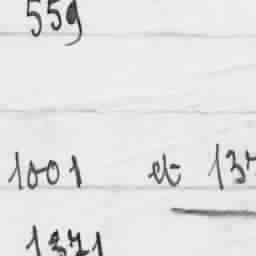 559
1001 et 137
1371